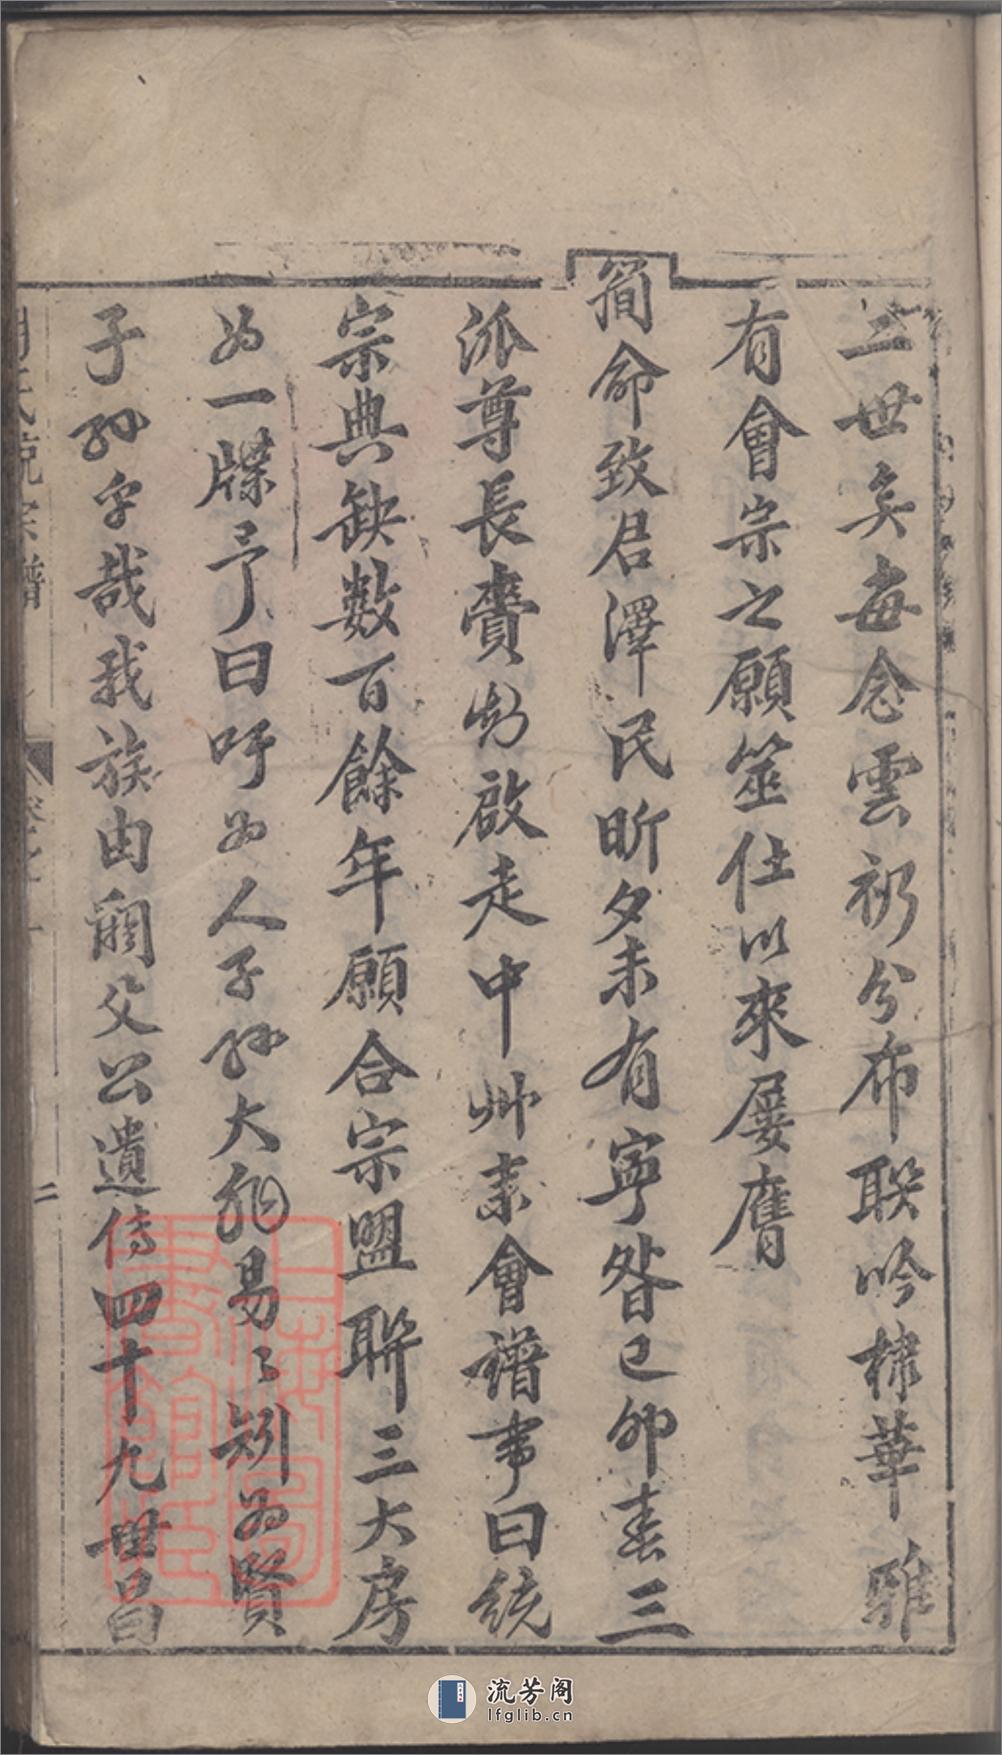 三世矣每念雲礽分布聯吟棣華雅
有會宗之願筮仕以來屢膺
簡命致君澤民昕夕未有寧晷己卯春三
派尊長賫幼啟走中州來會譜事曰統
宗典缺数百餘年願合宗盟聯三大房
为一牒予曰吁为人子孫大非易易矧为賢
子孫乎哉我族由閼父公遺传四十九世昌
氏統宗譜
二
上海圖書館藏
流芳阁
lfglib.cn